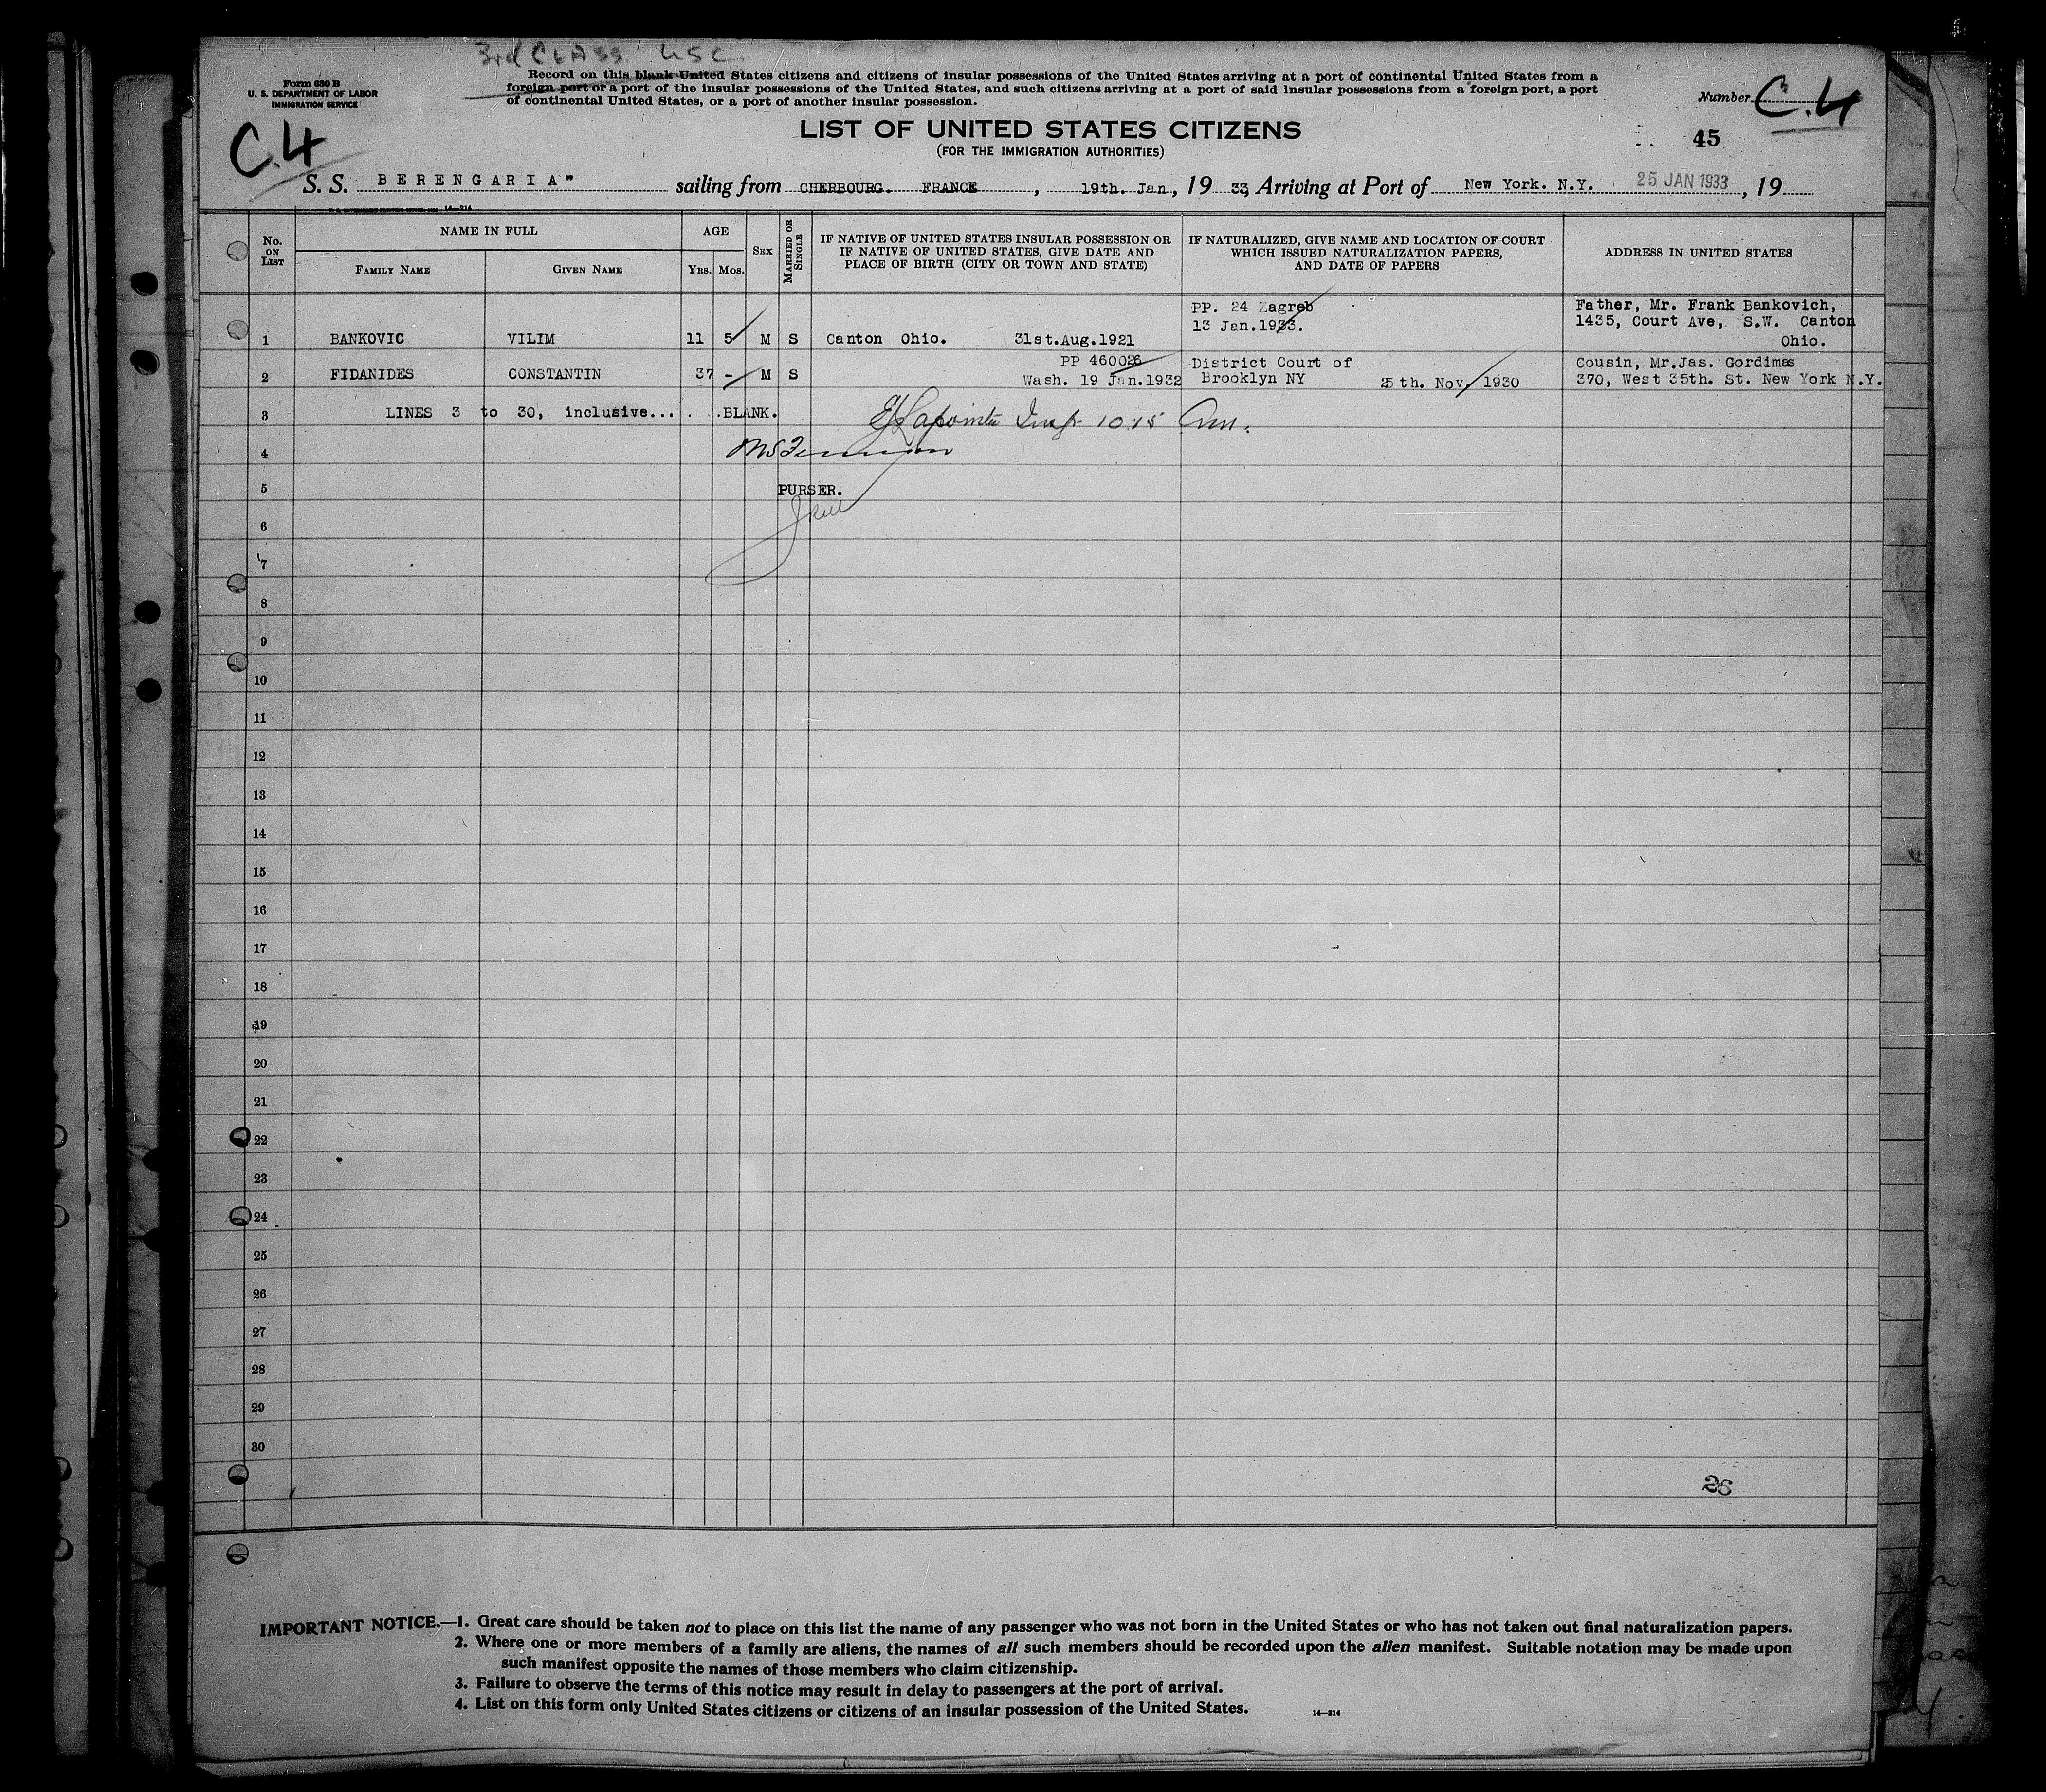 3rd CLASS USC
Form 630 B
U. S. DEPARTMENT OF LABOR
IMMIGRATION SERVICE
Record on this blank United States citizens and citizens of insular possessions of the United States arriving at a port of continental United States from a
foreign port or a port of the insular possessions of the United States, and such citizens arriving at a port of said insular possessions from a foreign port, a port
of continental United States, or a port of another insular possession.
Number C.4
C.4
LIST OF UNITED STATES CITIZENS
(FOR THE IMMIGRATION AUTHORITIES)
45
S. S. BERENGARIA" sailing from CHERBOURG. FRANCE, 19th. Jan, 19 33, Arriving at Port of New York. N.Y. 25 JAN 1933, 19
14—214
No. ON LIST
NAME IN FULL
FAMILY NAME
GIVEN NAME
AGE
YRS. MOS.
SEX
MARRIED OR SINGLE
IF NATIVE OF UNITED STATES INSULAR POSSESSION OR
IF NATIVE OF UNITED STATES, GIVE DATE AND
PLACE OF BIRTH (CITY OR TOWN AND STATE)
IF NATURALIZED, GIVE NAME AND LOCATION OF COURT
WHICH ISSUED NATURALIZATION PAPERS,
AND DATE OF PAPERS
ADDRESS IN UNITED STATES
PP. 24 Zagreb Father, Mr. Frank Bankovich,
13 Jan.1933. 1435, Court Ave, S.W. Canton
1 BANKOVIC VILIM 11 5 M S Canton Ohio. 31st.Aug.1921 Ohio.
PP 460026 District Court of Cousin, Mr.Jas. Gordimas
2 FIDANIDES CONSTANTIN 37 - M S Wash. 19 Jan.1932 Brooklyn NY 25th. Nov. 1930 370, West 35th. St. New York N.Y.
3 LINES 3 to 30, inclusive... . .BLANK. Lapointe Insp 10.15 Am.
4
5 PURSER.
6
7
8
9
10
11
12
13
14
15
16
17
18
19
20
21
22
23
24
25
26
27
28
29
30
26
IMPORTANT NOTICE.—1. Great care should be taken not to place on this list the name of any passenger who was not born in the United States or who has not taken out final naturalization papers.
2. Where one or more members of a family are aliens, the names of all such members should be recorded upon the alien manifest. Suitable notation may be made upon
such manifest opposite the names of those members who claim citizenship.
3. Failure to observe the terms of this notice may result in delay to passengers at the port of arrival.
4. List on this form only United States citizens or citizens of an insular possession of the United States.
14—214